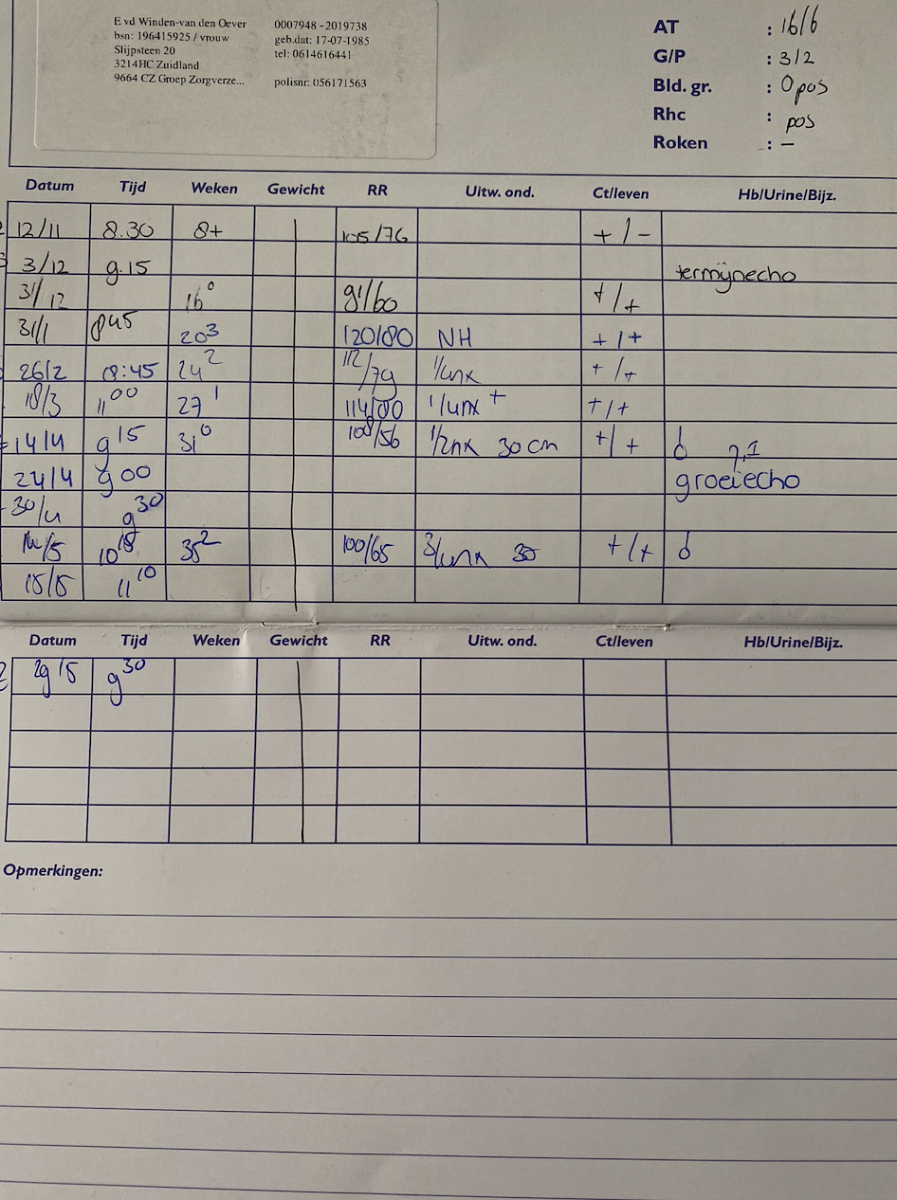 E vd Winden-van den Oever 0007948 - 2019738
bsn: 196415925 / vrouw geb.dat: 17-07-1985
Slijpsteen 20 tel: 0614616441
3214HC Zuidland
9664 CZ Groep Zorgverze... polisnr: 056171563
AT : 16/6
G/P : 3/2
Bld. gr. : O pos
Rhc : pos
Roken : -
Datum Tijd Weken Gewicht RR Uitw. ond. Ct/leven Hb/Urine/Bijz.
12/11 8.30 8+ 105/76 + / -
3/12 9.15 termijnecho
31/12 16⁰ 91/60 +/+
31/1 8⁴⁵ 20³ 120/80 NH +/+
26/2 08:45 24² 112/79 +/+
18/3 11⁰⁰ 27¹ 114/80 +/+
14/4 9¹⁵ 31⁰ 108/56 1/2nx 30 cm +/+ 7,1
24/4 9⁰⁰ groeiecho
30/4 9³⁰
14/5 10¹⁵ 35² 100/65 +/+
15/5 11¹⁰
Datum Tijd Weken Gewicht RR Uitw. ond. Ct/leven Hb/Urine/Bijz.
29/5 9³⁰
Opmerkingen: